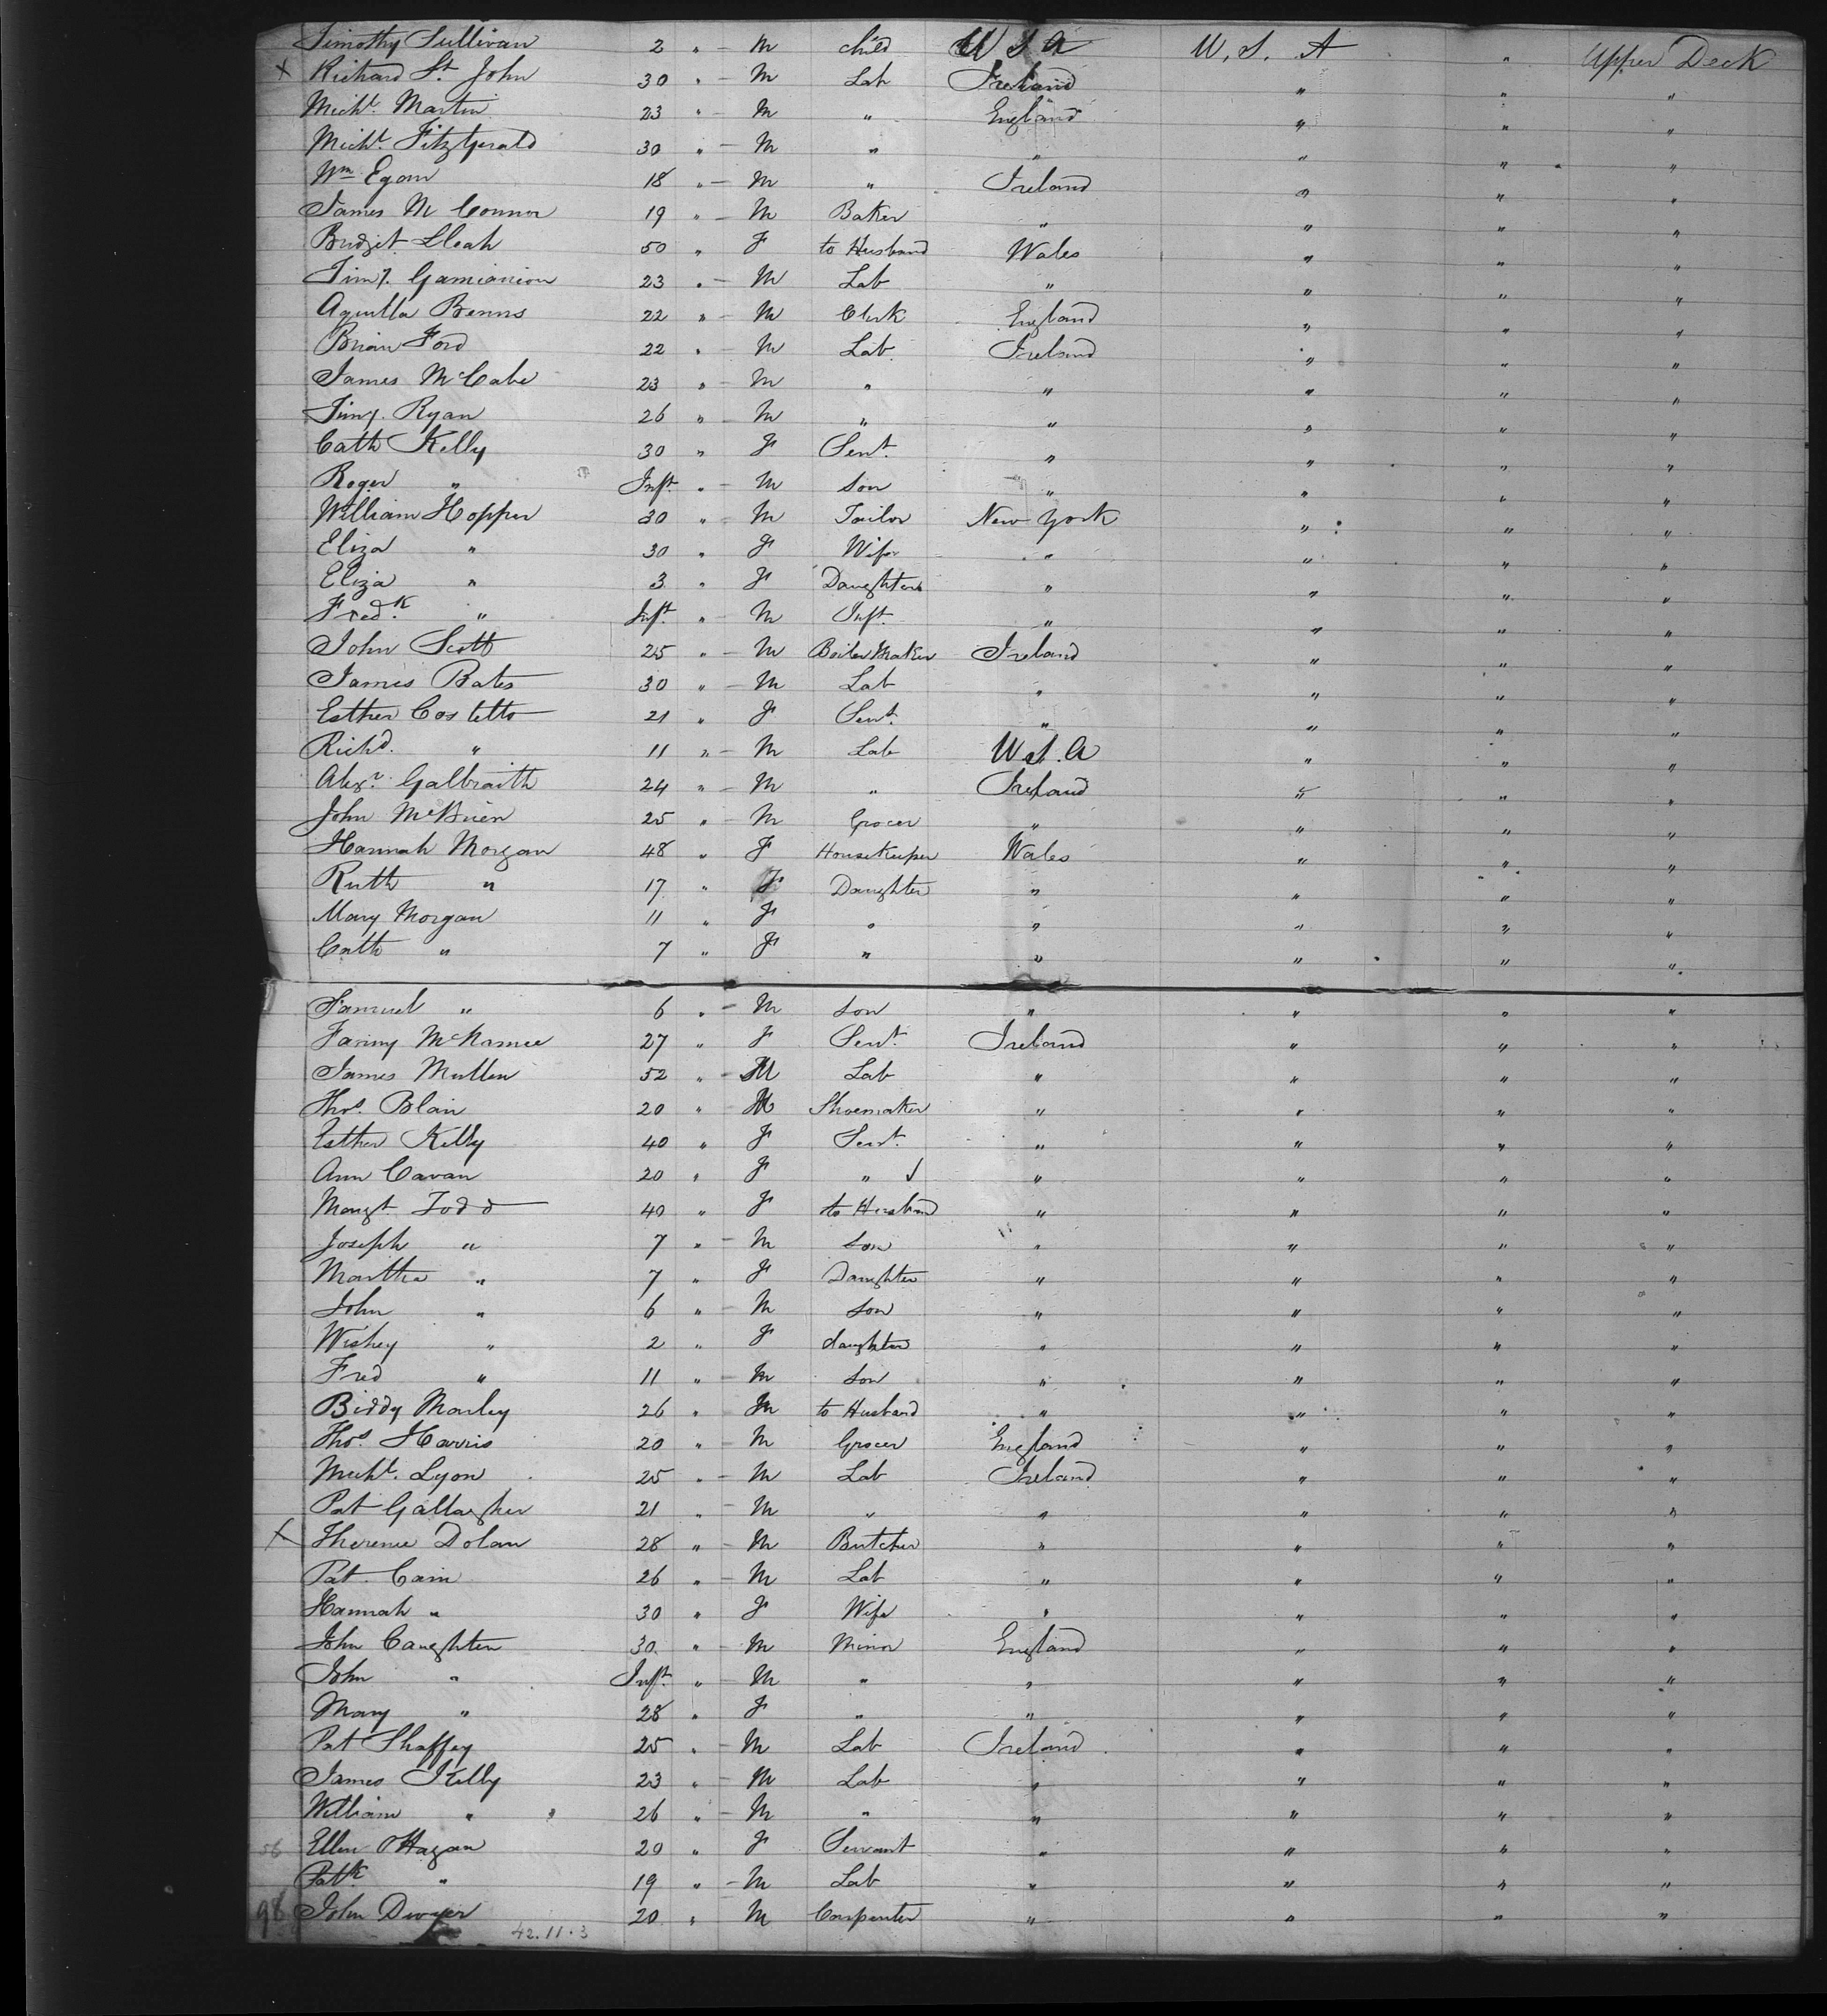 Timothy Sullivan 2 " - M child U S A U. S. A " Upper Deck
X Richard St. John 30 " - M Lab Ireland " " "
Michl. Martin 23 " - M " England " " "
Michl. FitzGerald 30 " - M " " " " "
Wm Egan 18 " - M " Ireland " " "
James M Connor 19 " - M Baker " " " "
Bridget Lleah 50 " F to Husband Wales " " "
Timy. Gamianion 23 " - M Lab " " " "
Aquilla Benns 22 " - M Clerk England " " "
Brian Ford 22 " - M Lab. Ireland " " "
James McCabe 23 " - M " " " " "
Timy. Ryan 26 " - M " " " " "
Cath Kelly 30 " F Servt. " " " "
Roger " Inft. " - M Son " " " "
William Hopper 30 " - M Tailor New York " " "
Eliza " 30 " F Wife " " " "
Eliza " 3 " F Daughter " " " "
Fredk. " Inft. " - M Inft. " " " "
John Scott 25 " - M Boiler Maker Ireland " " "
James Bates 30 " - M Lab " " " "
Esther Costello 21 " F Servt. " " " "
Richd. " 11 " - M Lab U.S.A " " "
Alexr. Galbraith 24 " - M " Ireland " " "
John McBrien 25 " - M Grocer " " " "
Hannah Morgan 48 " F Housekeeper Wales " " "
Ruth " 17 " F Daughter " " " "
Mary Morgan 11 " F " " " " "
Cath " 7 " F " " " " "
Samuel " 6 " - M Son " " " "
Fanny McNamee 27 " F Servt. Ireland " " "
James Mullen 52 " - M Lab " " " "
Thos. Blair 20 " - M Shoemaker " " " "
Esther Kelly 40 " F Servt. " " " "
Ann Cavan 20 " F " " " " "
Margt. Todd 40 " F to Husband " " " "
Joseph " 7 " - M Son " " " "
Martha " 7 " F Daughter " " " "
John " 6 " - M Son " " " "
Wishey " 2 " F daughter " " " "
Fred " 11 " - M Son " " " "
Biddy Manley 26 " - M to Husband " " " "
Thos. Harris 20 " - M Grocer England " " "
Michl. Lyon 25 " - M Lab Ireland " " "
Pat Gallagher 21 - M " " " " "
X Therence Dolan 28 " - M Butcher " " " "
Pat Cain 26 " - M Lab " " " "
Hannah " 30 " F Wife " " " "
John Caughten 30 " - M Minor England " " "
John " Inft. " - M " " " " "
Mary " 28 " F " " " " "
Pat Shaffey 25 " - M Lab Ireland " " "
James Kelly 23 " - M Lab " " " "
William " 26 " - M " " " " "
56 Ellen O'Hagan 20 " F Servant " " " "
Patk " 19 " - M Lab " " " "
98 John Dwyer 20 " M Carpenter " " " "
42.11.3